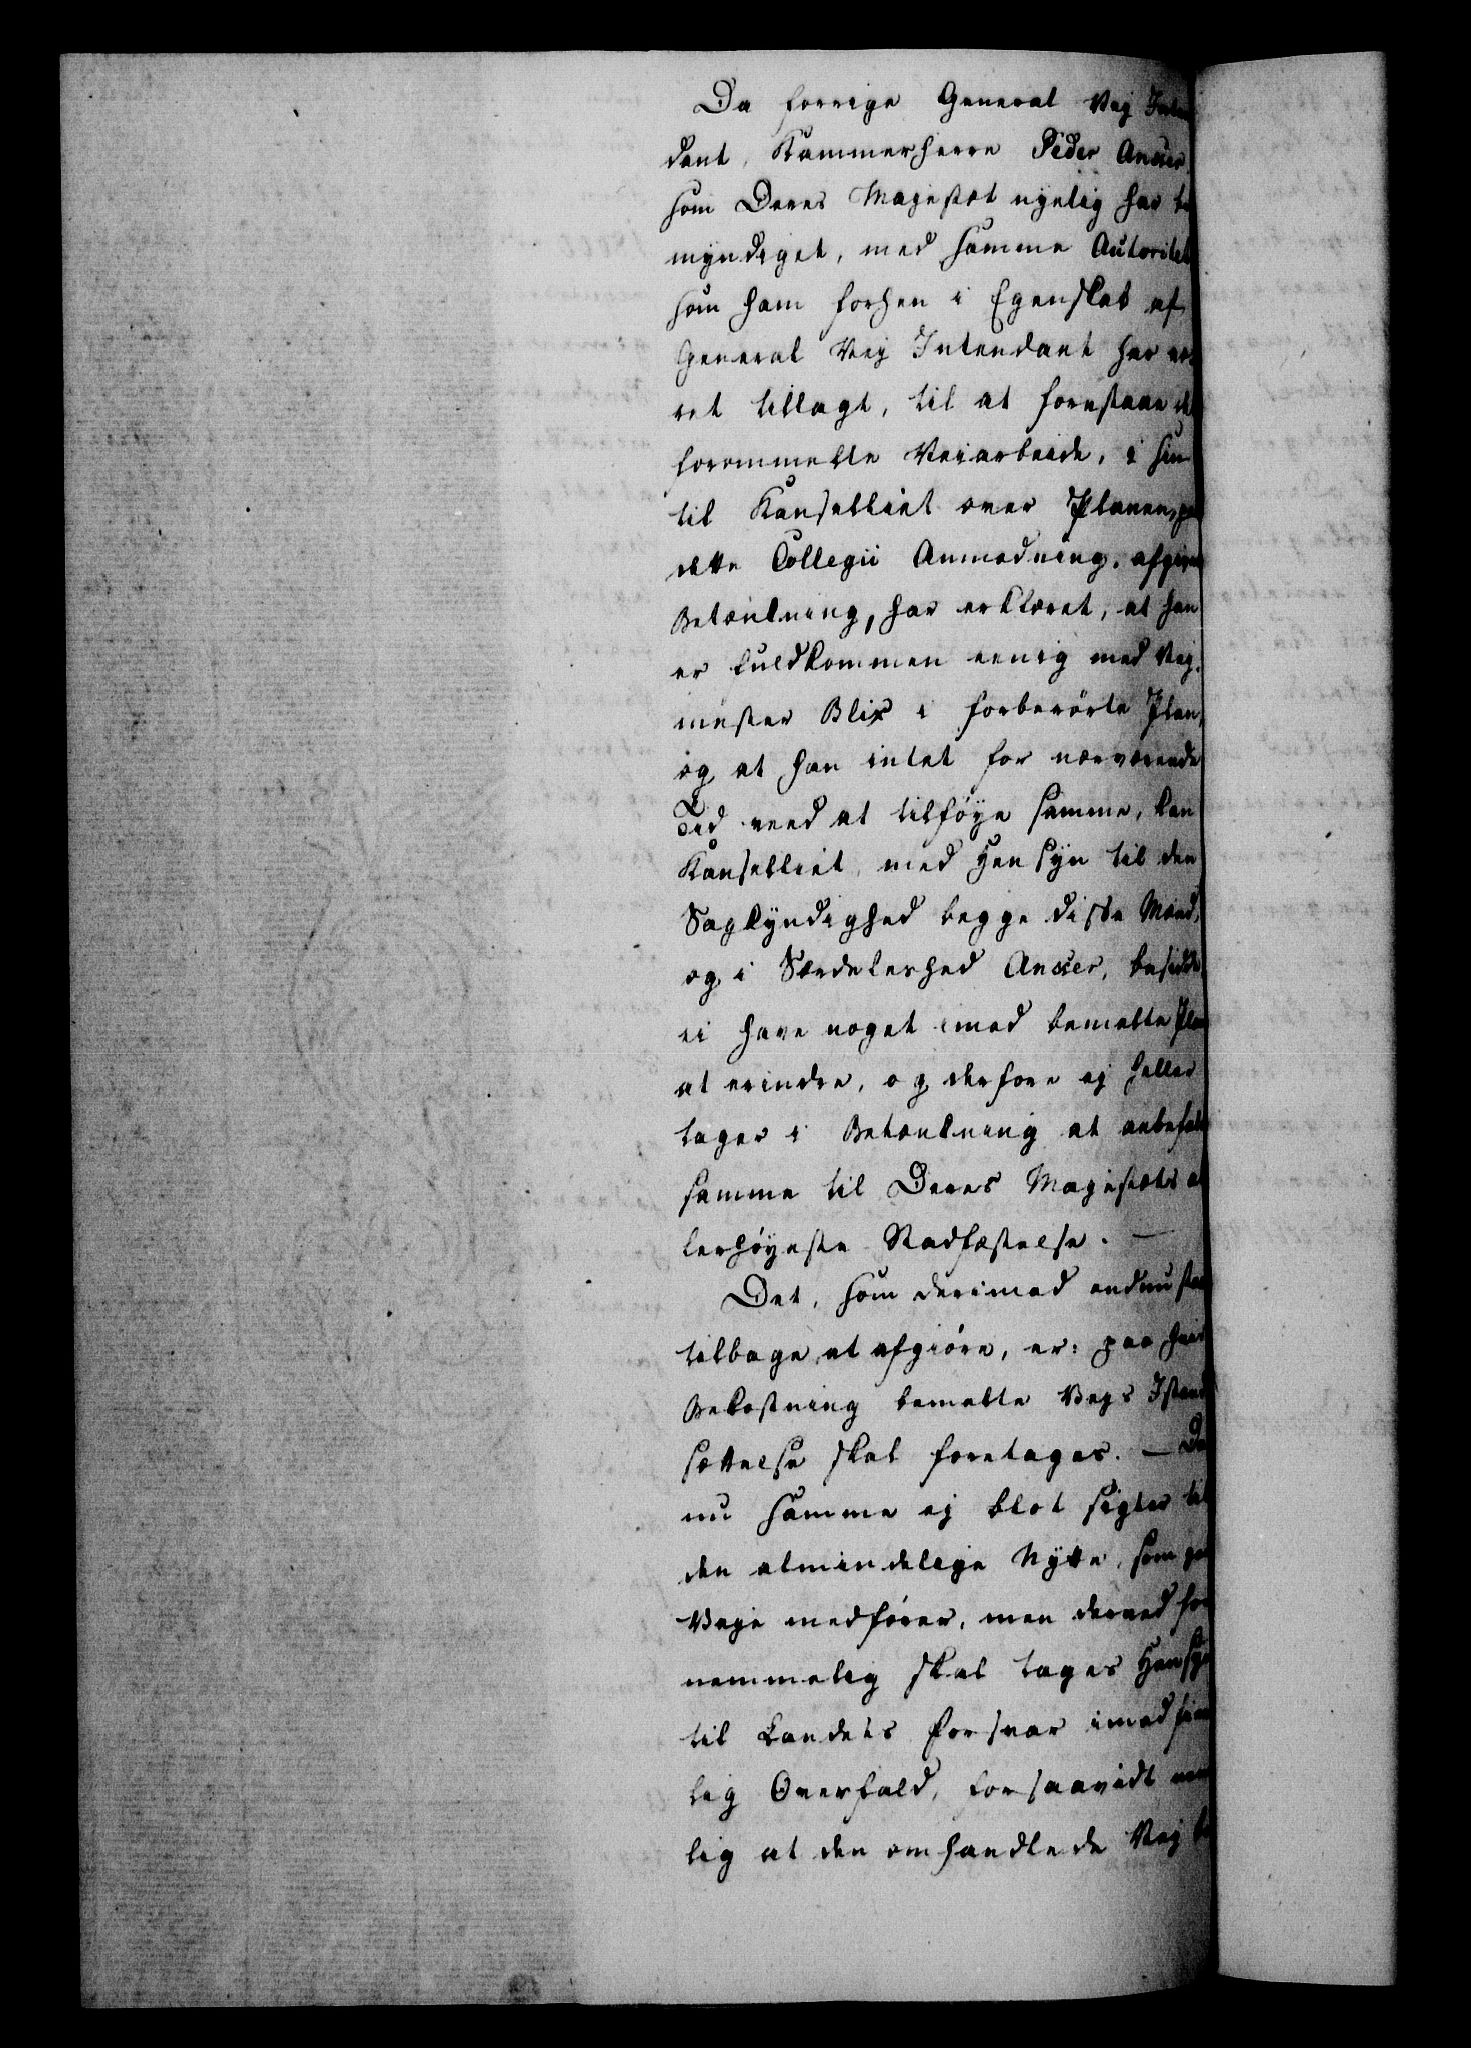 Da forrige General Vej Inten
dant, Kammerherre Peder Ancher,
som Deres Majestæt nyelig har be
myndiget, med samme Autoritet
som ham forhen i Egenskab af
General Vej Intendant har væ
ret tillagt, til at forestaae det
forommelte Veiarbeide, i sin
til Kanselliet over Planen, paa
dette Collegii Anmodning, afgivne
Betænkning, har erklæret, at han
er fuldkommen eenig med Vej-
mester Blix i forberørte Plan,
og at han intet for nærværende
Tid veed at tilføye samme, kan
Kanselliet, med Hensyn til den
Sagkyndighed begge disse Mænd,
og i Særdeleshed Ancher, besidde,
ei have noget imod bemelte Plan
at erindre, og derfore ej heller
tager i Betænkning at anbefale
samme til Deres Majestæts al
lerhøyeste Stadfæstelse. —
Det, som derimod endnu staar
tilbage at afgiøre, er: paa hvis
Bekostning bemelte Vejs Istand
sættelse skal foretages. — Da
nu samme ej blot sigter til
den almindelige Nytte, som gode
Veje medfører, men derved for
nemmelig skal tages Hensyn
til Landets Forsvar imod fiendt
lig Overfald, forsaavidt nem
lig at den omhandlede Vej